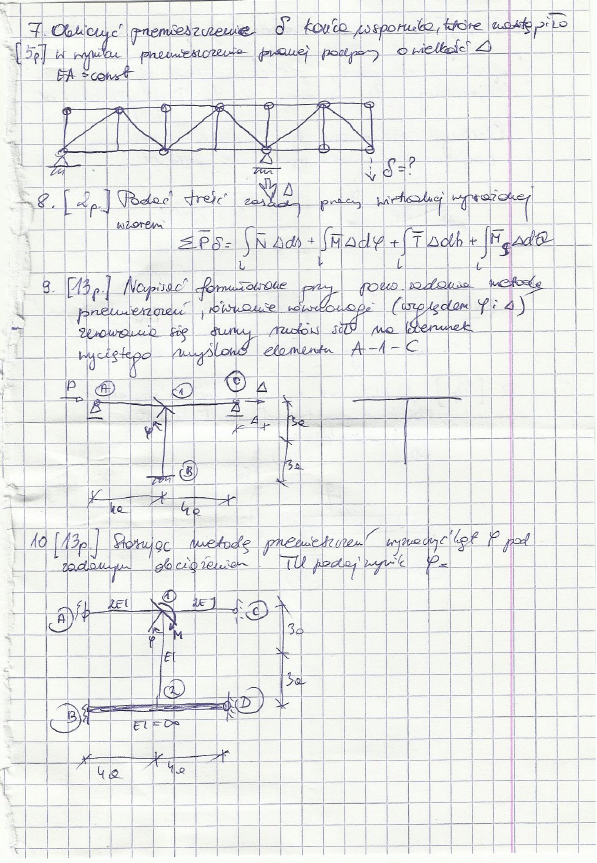 7. Obliczyć przemieszczenie δ końca wspornika, które nastąpiło
[5p] w wyniku przemieszczenia prawej podpory o wielkość Δ
EA = const
δ = ?
Δ
8. [2p] Podać treść zasady pracy wirtualnej wyrażonej
wzorem
Σ P̄ δ = ∫ N̄ Δds + ∫ M̄ Δdφ + ∫ T̄ Δdh + ∫ M̄s Δdθ
9. [13p.] Napisać formułowane przy rozw. zadania metodą
przemieszczeń, równanie równowagi (względem φ i Δ)
zerowania się sumy rzutów sił na kierunek
wyciętego myślowo elementu A-1-C
P A 1 C Δ
φ Δ 3a
B 3a
4a 4a
10 [13p.] Stosując metodę przemieszczeń wyznaczyć kąt φ pod
zadanym obciążeniem podaj wynik φ=
A 2EI 1 2EI C
φ M 3a
EI
2 3a
B EI=∞ D
4a 4a